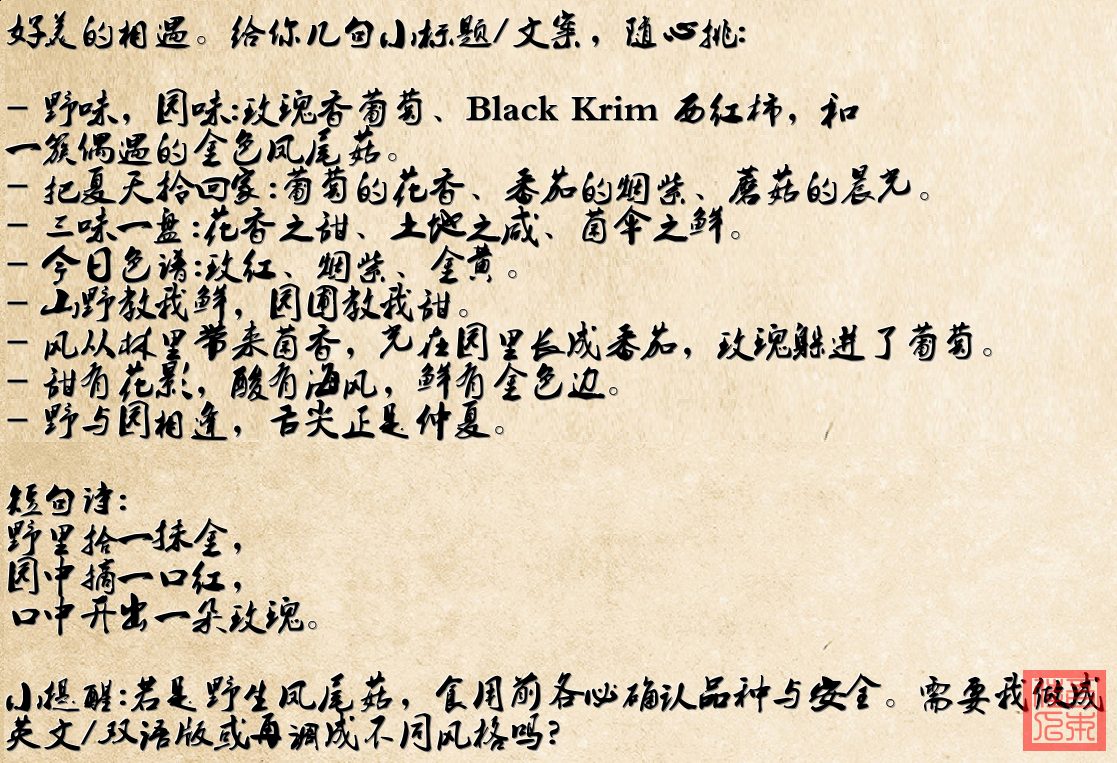 好美的相遇。给你几句小标题/文案，随心挑:
- 野味，园味:玫瑰香葡萄、Black Krim 西红柿，和
一簇偶遇的金色凤尾菇。
- 把夏天拾回家:葡萄的花香、番茄的烟紫、蘑菇的晨光。
- 三味一盘:花香之甜、土地之咸、菌伞之鲜。
- 今日色谱:玫红、烟紫、金黄。
- 山野教我鲜，园圃教我甜。
- 风从林里带来菌香，光在园里长成番茄，玫瑰躲进了葡萄。
- 甜有花影，酸有海风，鲜有金色边。
- 野与园相逢，舌尖正是仲夏。
短句诗:
野里拾一抹金，
园中摘一口红，
口中开出一朵玫瑰。
小提醒:若是野生凤尾菇，食用前务必确认品种与安全。需要我做成
英文/双语版或再调成不同风格吗?